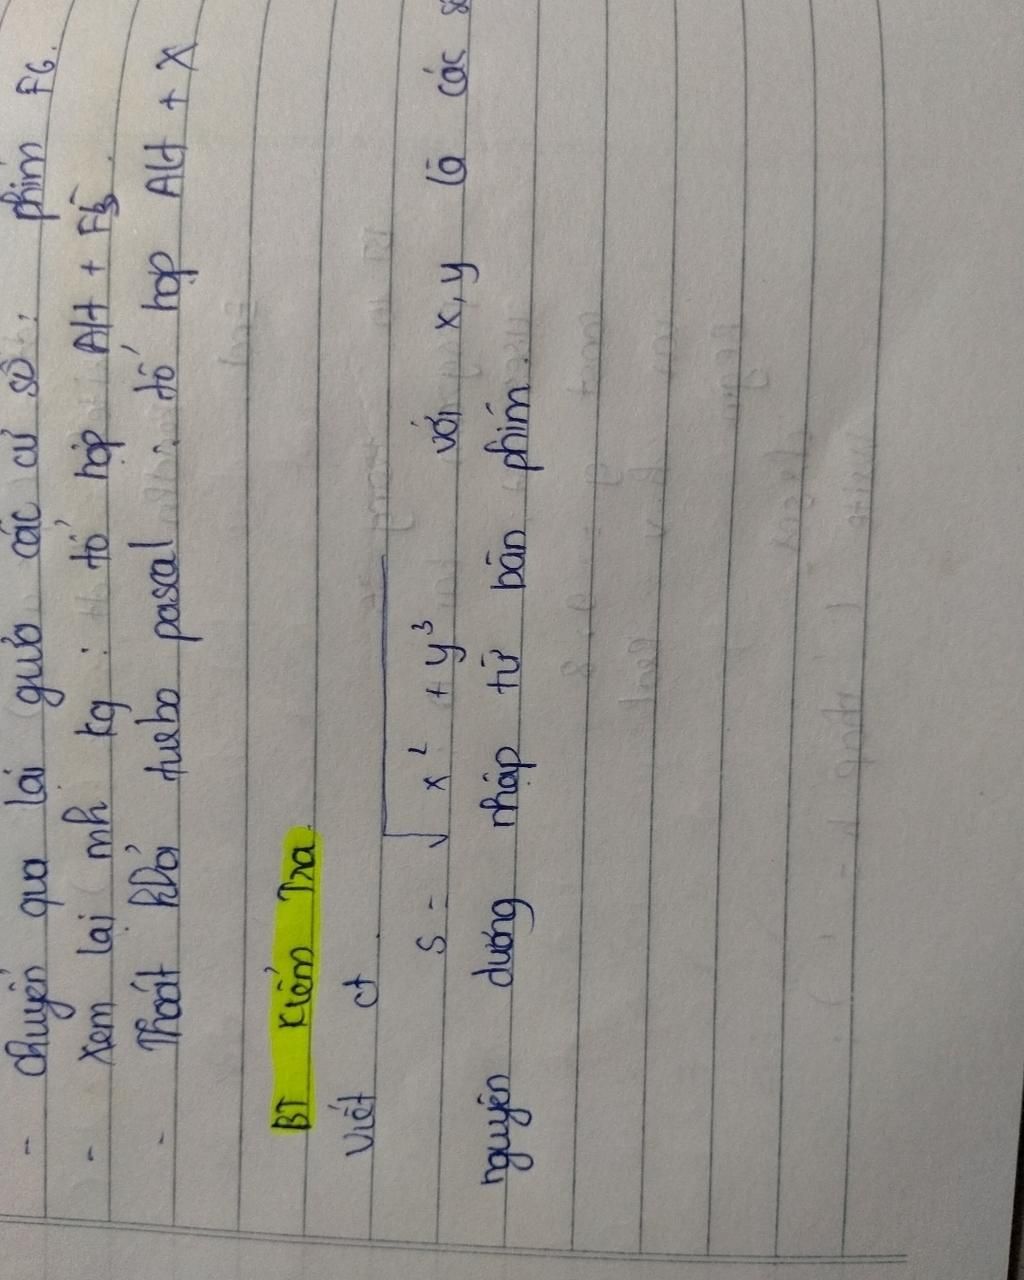 - Chuyển qua lại giữa các cử sổ : phím F6.
- Xem lại mh kq : tổ hợp Alt + F5.
- Thoát khỏi turbo pascal : tổ hợp Alt + X
BT Kiểm Tra.
Viết ct
S = √x² + y³ với x, y là các
nguyên dương nhập từ bàn phím.